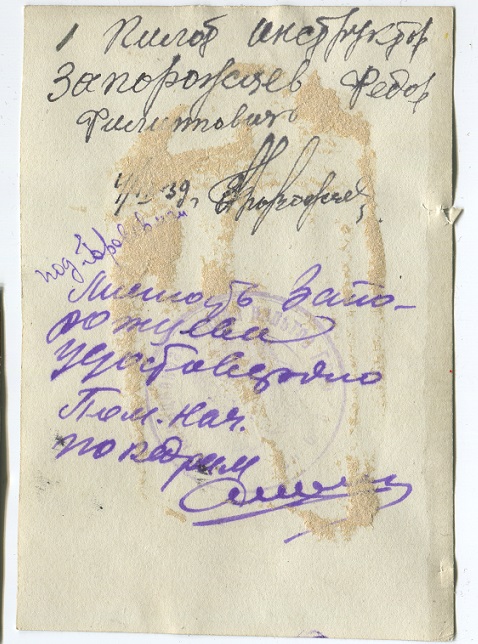 1 Пилот инструктор
Запорожцев Федор
Филиппович
39 г.
под
Личность Запо-
рожцева
удостоверяю
Пом. нач.
по кадрам